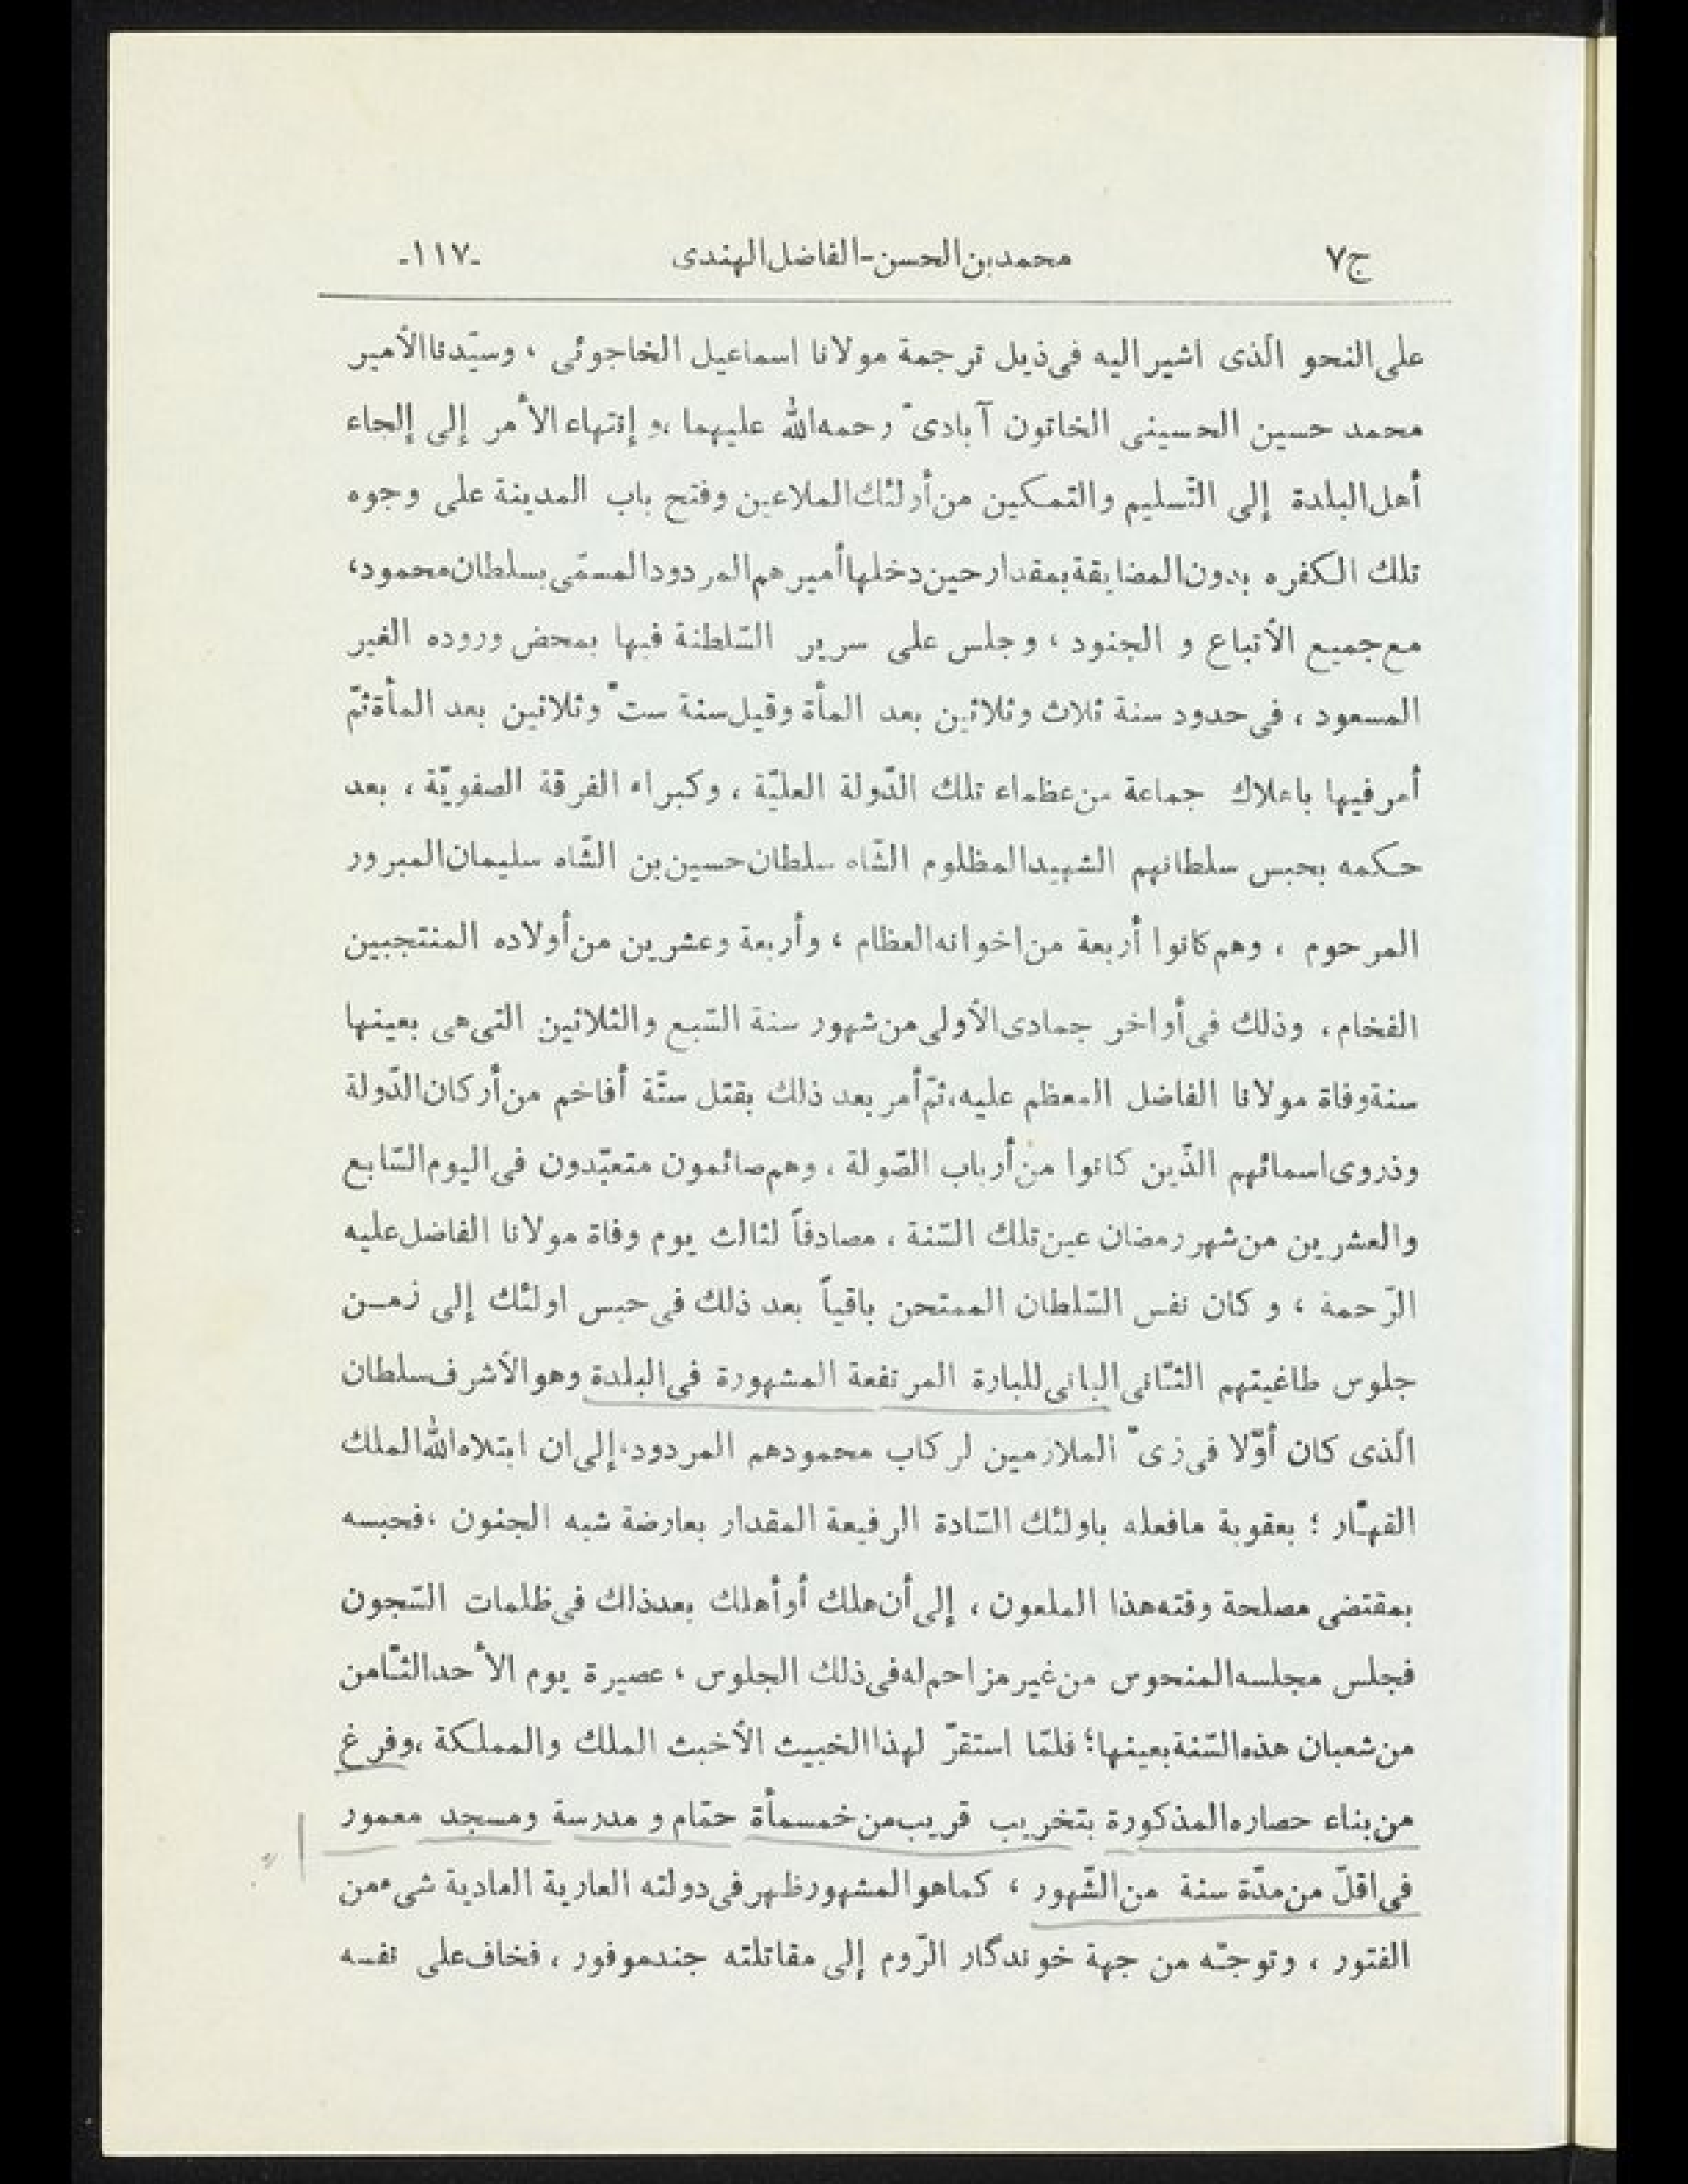 ج٧ محمدبن الحسن-الفاضل الهندى -١١٧-
على النحو الّذى اشير اليه فى ذيل ترجمة مولانا اسماعيل الخاجوئى ، وسيّدنا الأمير
محمد حسين الحسينى الخاتون آبادىّ رحمه الله عليهما ،و إنتهاء الأمر إلى إلجاء
أهل البلدة إلى التّسليم والتمكين من أولئك الملاعين وفتح باب المدينة على وجوه
تلك الكفره بدون المضايقة بمقدار حين دخلها أميرهم المردود المسمّى بسلطان محمود،
مع جميع الأتباع و الجنود ، وجلس على سرير السّلطنة فيها بمحض وروده الغير
المسعود ، فى حدود سنة ثلاث وثلاثين بعد المأة وقيل سنة ستّ وثلاثين بعد المأة ثمّ
أمر فيها باهلاك جماعة من عظماء تلك الدّولة العليّة ، وكبراء الفرقة الصفويّة ، بعد
حكمه بحبس سلطانهم الشهيد المظلوم الشّاه سلطان حسين بن الشّاه سليمان المبرور
المرحوم ، وهم كانوا أربعة من اخوانه العظام ، وأربعة وعشرين من أولاده المنتجبين
الفخام ، وذلك فى أواخر جمادى الأولى من شهور سنة السّبع والثلاثين التى هى بعينها
سنة وفاة مولانا الفاضل المعظم عليه،ثمّ أمر بعد ذلك بقتل ستّة أفاخم من أركان الدّولة
وذروى اسمائهم الذّين كانوا من أرباب الصّولة ، وهم صائمون متعبّدون فى اليوم السّابع
والعشرين من شهر رمضان عين تلك السّنة ، مصادفاً لثالث يوم وفاة مولانا الفاضل عليه
الرّحمة ، و كان نفس السّلطان الممتحن باقياً بعد ذلك فى حبس اولئك إلى زمـن
جلوس طاغيتهم الثّانى البانى للبارة المرتفعة المشهورة فى البلدة وهو الأشرف سلطان
الّذى كان أوّلا فى زىّ الملازمين لركاب محمودهم المردود،إلى ان ابتلاه الله الملك
القهّار ؛ بعقوبة مافعله باولئك السّادة الرفيعة المقدار بعارضة شبه الجنون ،فحبسه
بمقتضى مصلحة وقته هذا الملعون ، إلى أن هلك أو أهلك بعد ذلك فى ظلمات السّجون
فجلس مجلسه المنحوس من غير مزاحم له فى ذلك الجلوس ، عصيرة يوم الأحد الثّامن
من شعبان هذه السّنة بعينها؛ فلمّا استقرّ لهذا الخبيث الأخبث الملك والمملكة ،وفرغ
من بناء حصاره المذكورة بتخريب قريب من خمسمأة حمّام و مدرسة ومسجد معمور
فى اقلّ من مدّة سنة من الشّهور ، كما هو المشهور ظهر فى دولته العارية العادية شىء من
الفتور ، وتوجّه من جهة خوندگار الرّوم إلى مقاتلته جند موفور ، فخاف على نفسه